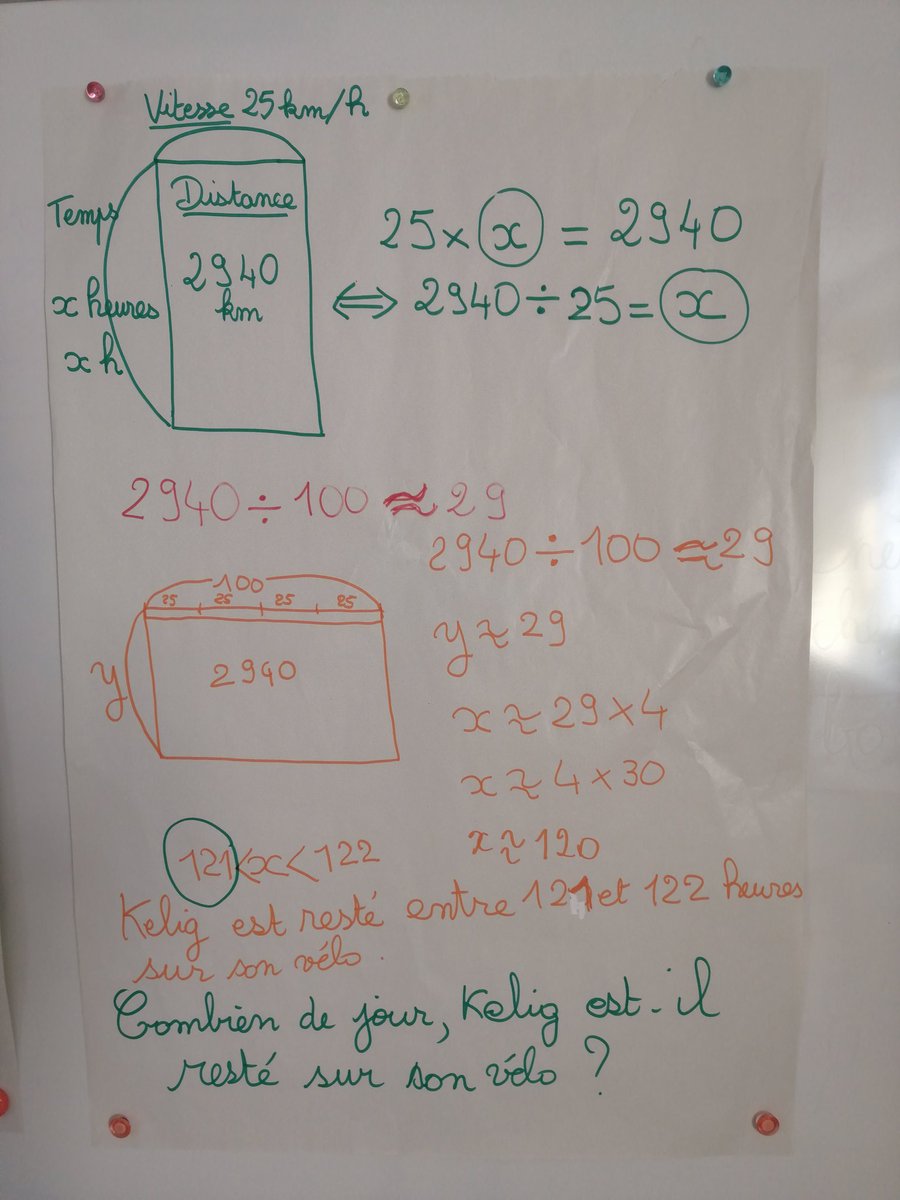 Vitesse 25 km/h
Temps
x heures
x h
Distance
2940
km
25 × x = 2940
⟺ 2940 ÷ 25 = x
2940 ÷ 100 ≈ 29
2940 ÷ 100 ≈ 29
100
25 25 25 25
y
2940
y ≈ 29
x ≈ 29 × 4
x ≈ 4 × 30
x ≈ 120
121 < x < 122
Kelig est resté entre 121 et 122 heures
sur son vélo.
Combien de jour, Kelig est-il
resté sur son vélo ?